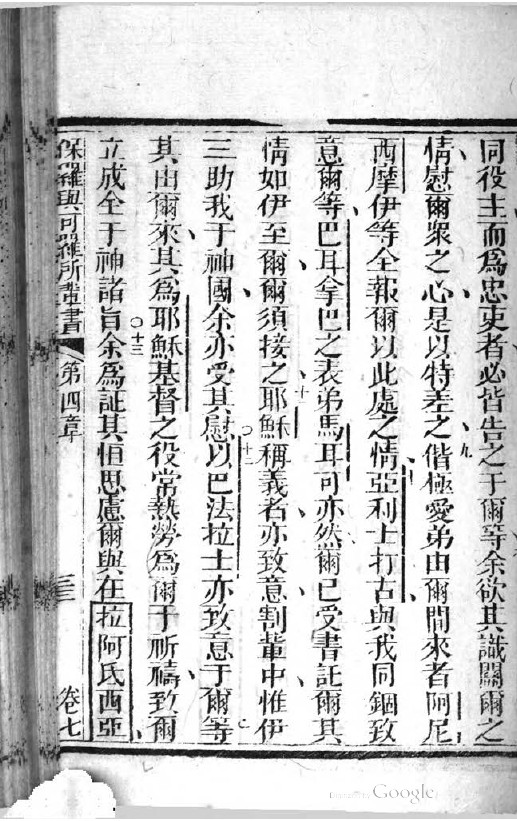 同役主而為忠吏者必皆告之于爾等余欲其識關爾之
情慰爾衆之心是以特差之九偕極愛弟由爾間來者阿尼
西摩伊等全報爾以此處之情十亞利士打古與我同錮致
意爾等巴耳拿巴之表弟馬耳可亦然爾已受書証爾其
情如伊至爾爾須接之十一耶穌稱義者亦致意割輩中惟伊
三助我于神國余亦受其慰十二以巴法拉士亦致意于爾等
其由爾來其為耶穌基督之役常熱勞為爾于祈禱致爾
立成全于神諸旨十三余為証其恒思慮爾與在拉阿氏西亞
保羅與可羅所輩書 第四章 三 卷七
Digitized by Google